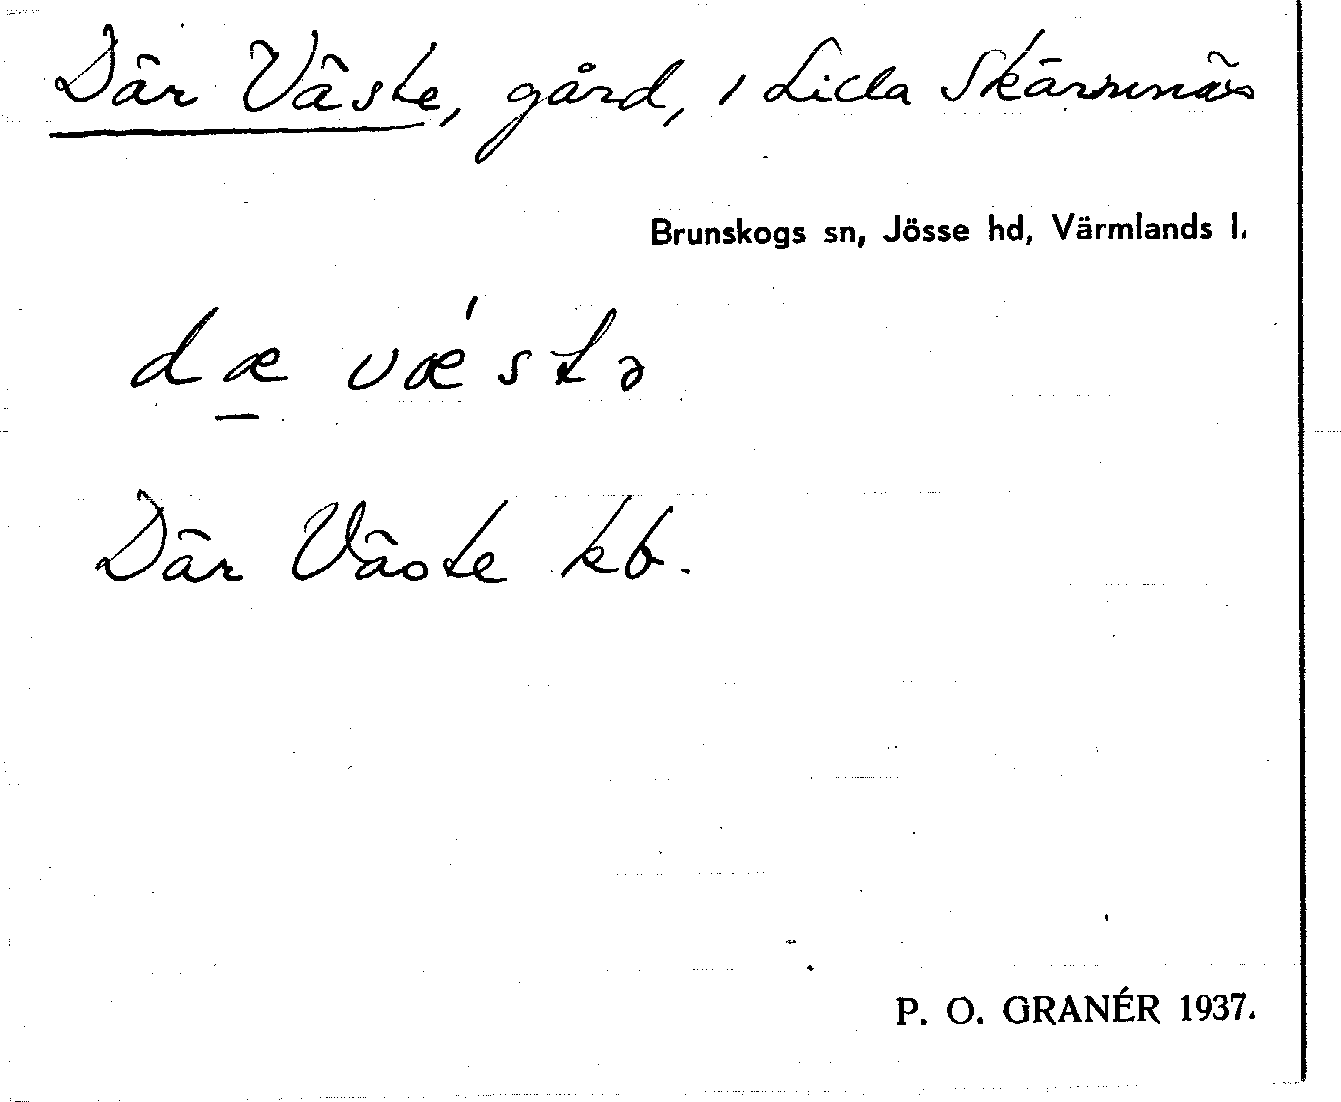 Där Väste, gård, i Lilla Skärmnäs
Brunskogs sn, Jösse hd, Värmlands l.
dæ vǽstə
Där Väste kb.
P. O. GRANÉR 1937.